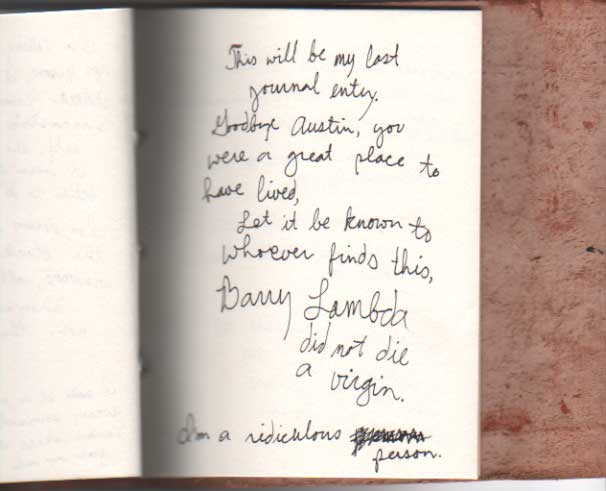 This will be my last
journal entry.
Goodbye Austin, you
were a great place to
have lived,
Let it be known to
whoever finds this,
Barry Lambda
did not die
a virgin.
I'm a ridiculous
person.